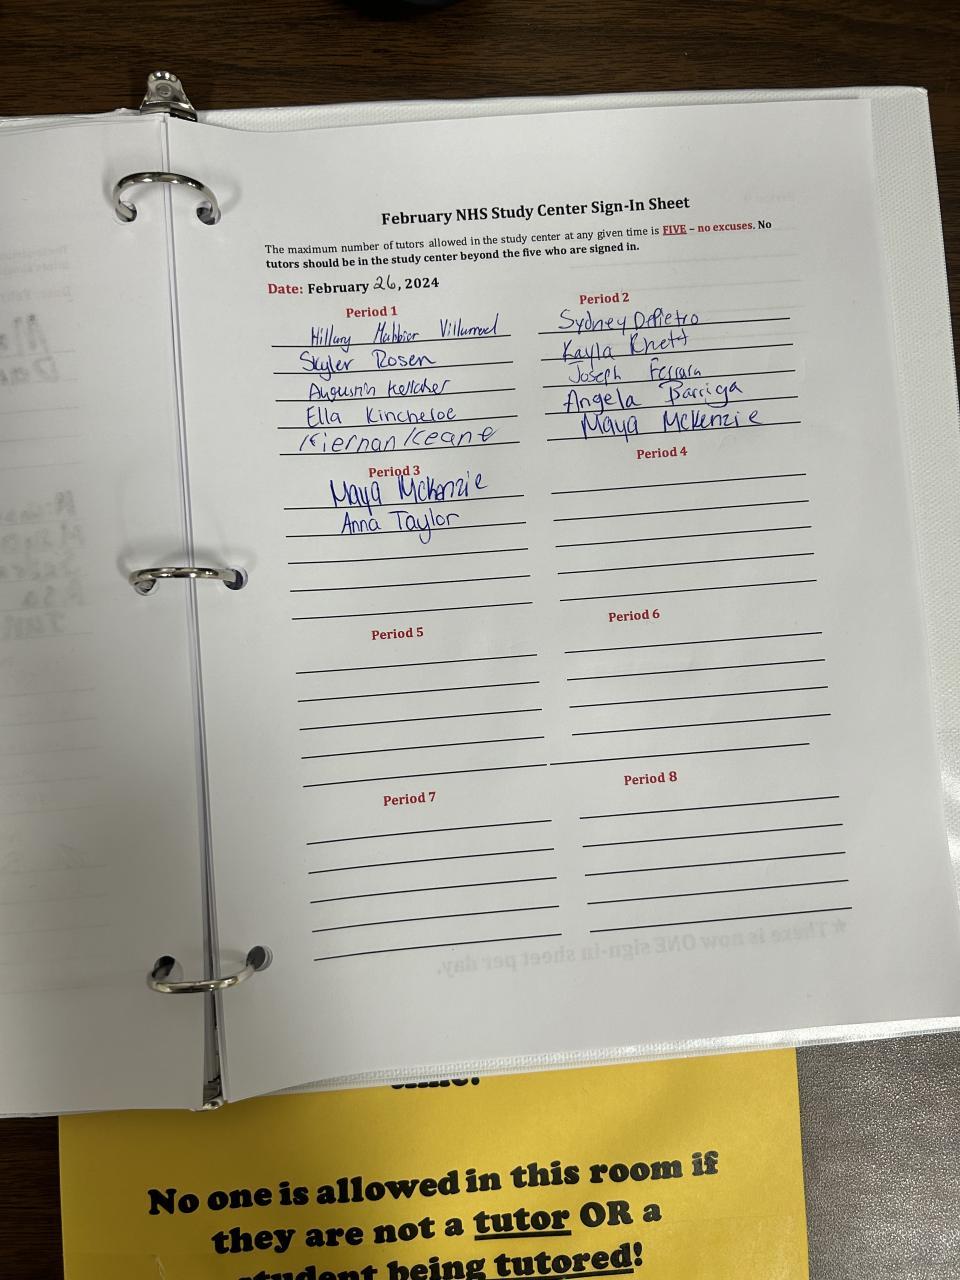 February NHS Study Center Sign-In Sheet
The maximum number of tutors allowed in the study center at any given time is FIVE – no excuses. No
tutors should be in the study center beyond the five who are signed in.
Date: February 26, 2024
Period 1
Hillary
Skyler Rosen
Augustin Kelleher
Ella Kincheloe
Kiernan Keane
Period 2
Sydney DePietro
Kayla Rhett
Joseph Ferrara
Angela Barriga
Maya McKenzie
Period 3
Maya McKenzie
Anna Taylor
Period 4
Period 5
Period 6
Period 7
Period 8
★There is now ONE sign-in sheet per day.
No one is allowed in this room if
they are not a tutor OR a
student being tutored!